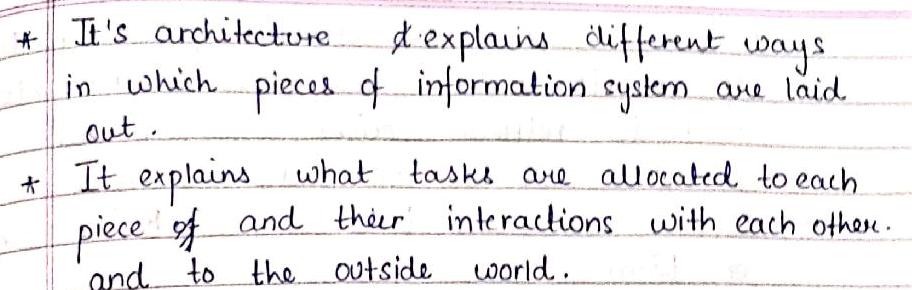 * It's architecture explains different ways
in which pieces of information system are laid
out.
* It explains what tasks are allocated to each
piece of and their interactions with each other.
and to the outside world.